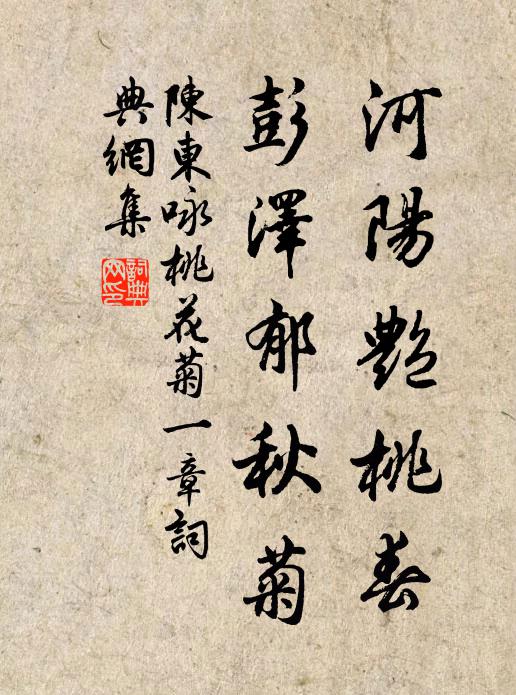 河陽艷桃春
彭澤郁秋菊
陳東咏桃花菊一章詞
典網集
詞典
网印